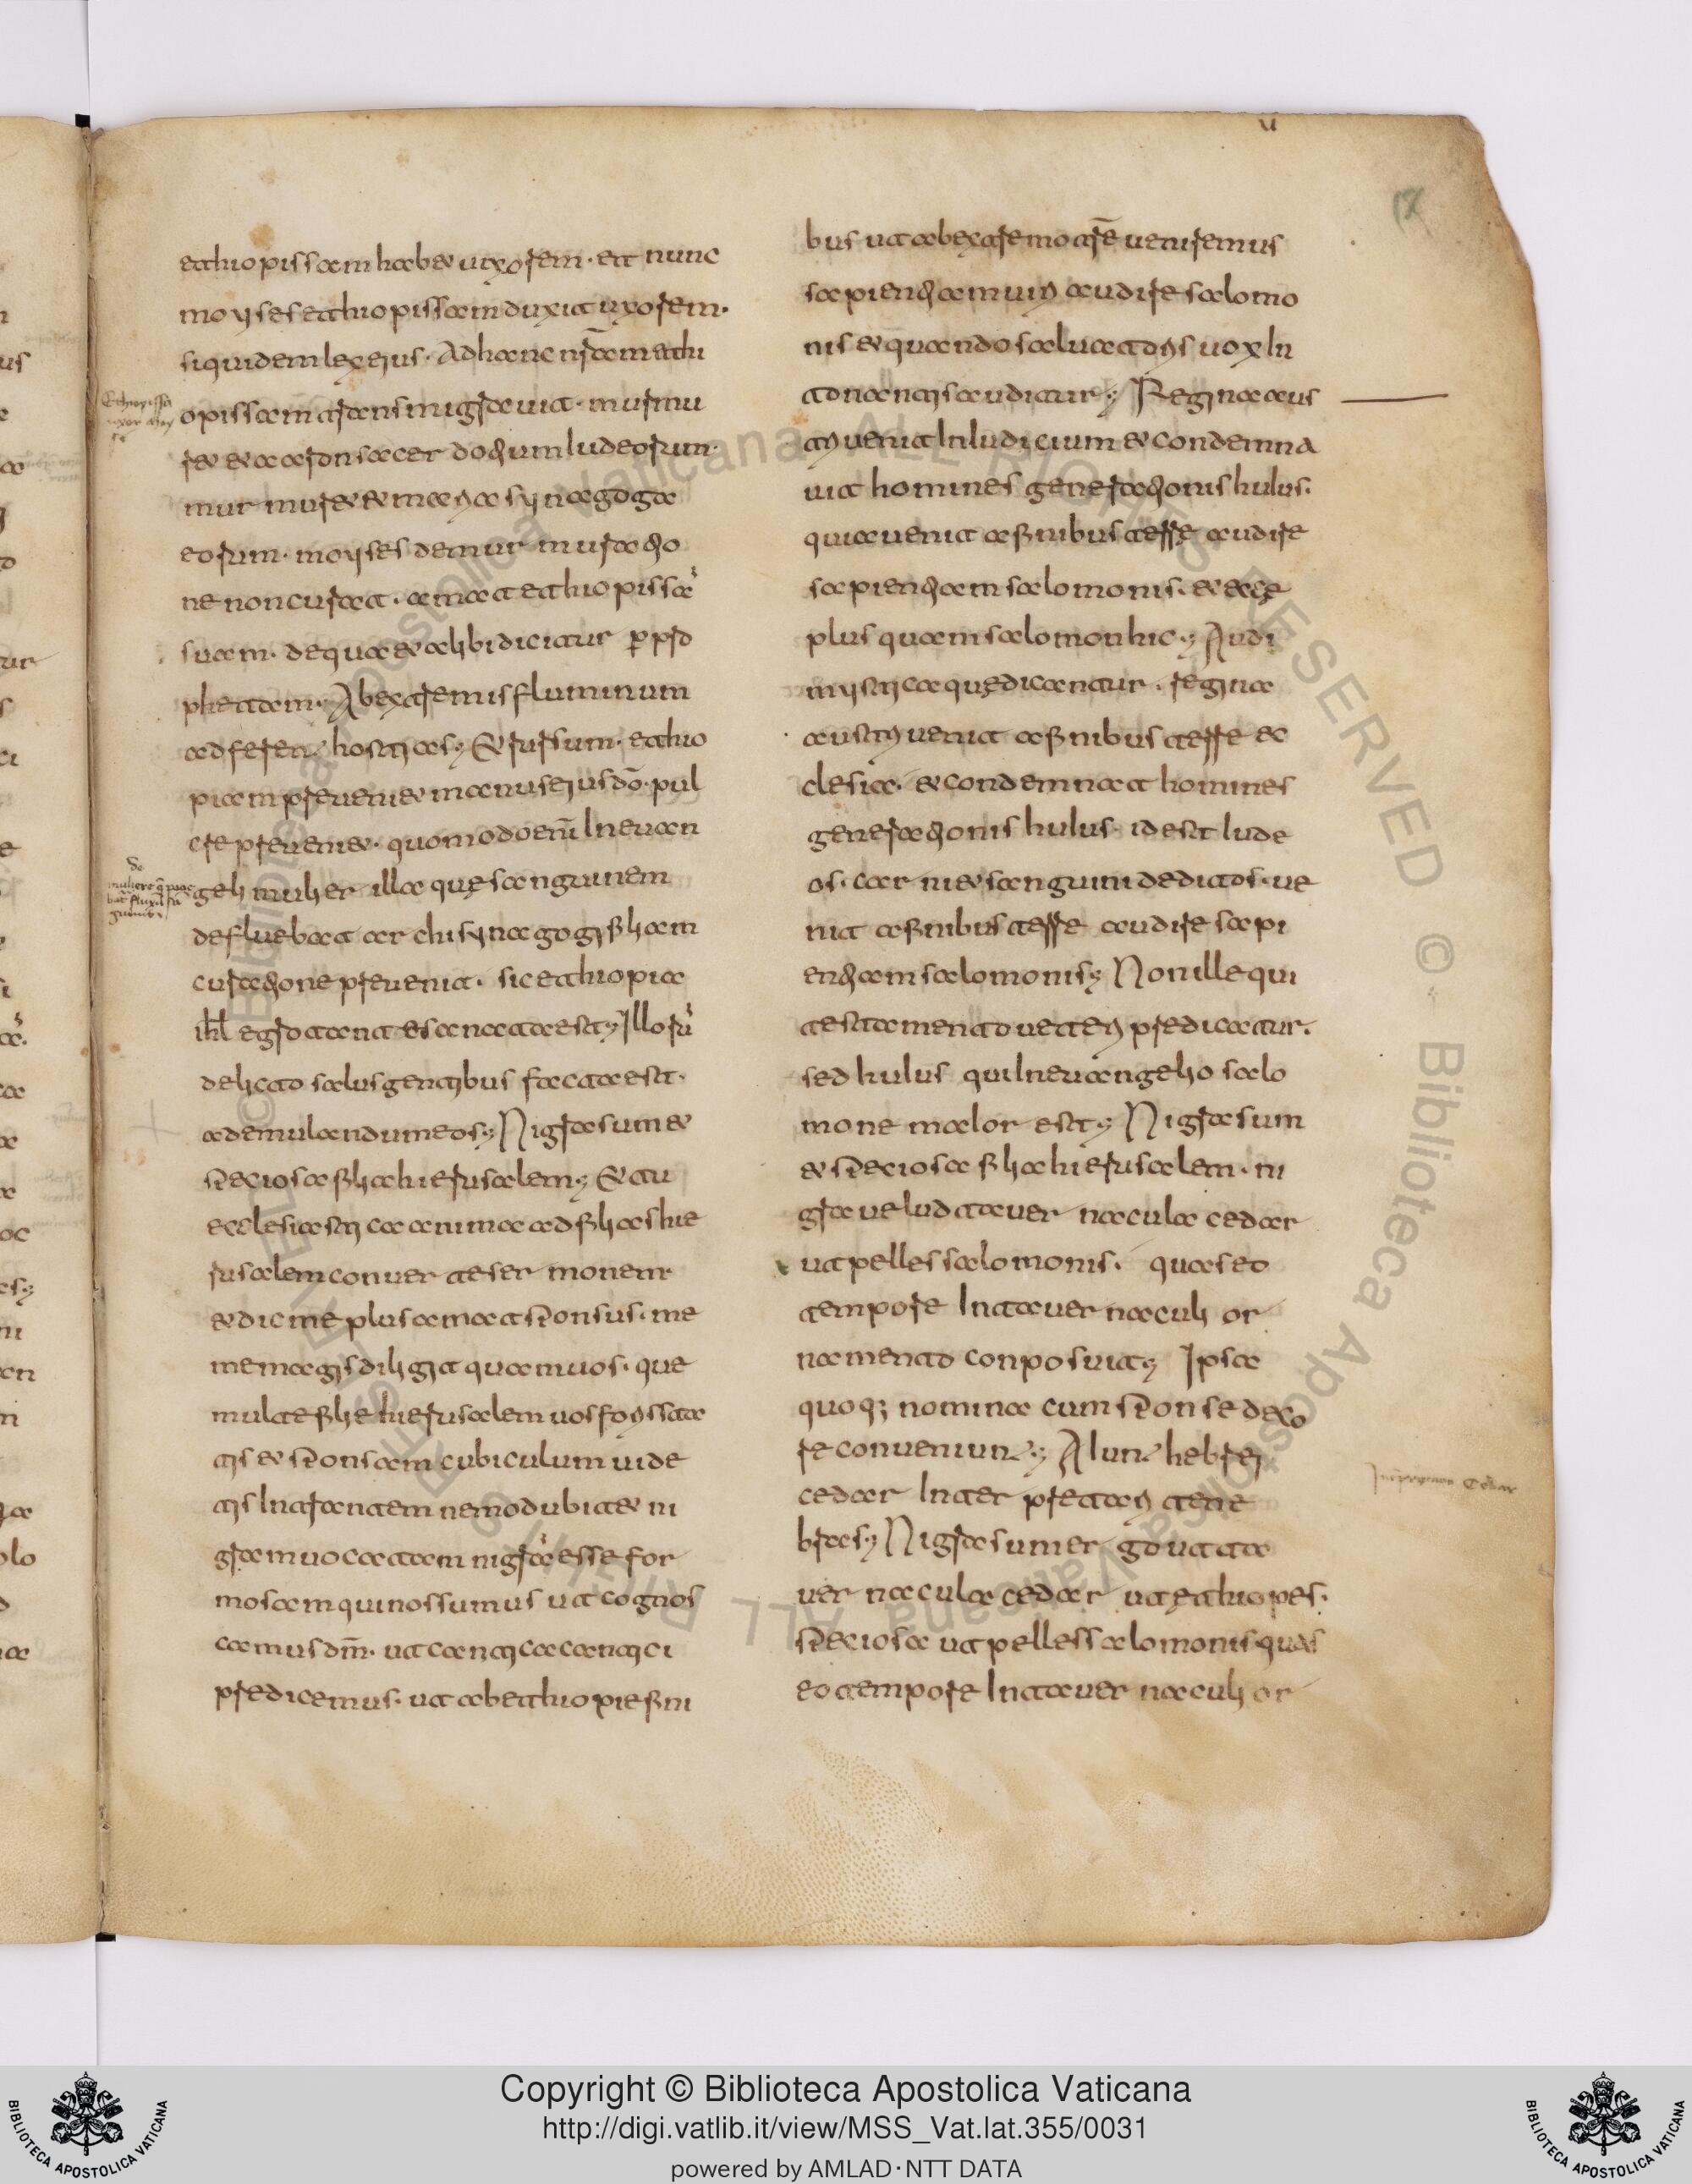 ethiopissam habet uxorem· et nunc
moyses ethiopissam duxit uxorem·
siquidem lex eius· Ad hanc nr̄am ethi
opissam transmigravit· murmu
ret et aaron sacerdotium Iudeorum·
murmuret et maria synagoga
eorum· moyses de murmuratio
ne non curat· amat ethiopissā
suam· de qua et alibi dicitur ꝑ pro
phetam· Ab extremis fluminum
adferent hostias; Et rursum· ethio
piam preveniet manus eius dō· pul
cre preveniet· quomodo enī In evan
gelio mulier illa quę sanguinem
defluebat archisynagogi filiam
curatione prevenit· sic ethiopia
ihl egrotante sanata est; Illorū
delicto salus gentibus facta est·
ad emulandum eos; Nigra sum et
speciosa filia hierusalem; Et tu
ecclesiastica anima ad filias hie
rusalem convertere sermonem
et dic me plus amat sponsus· me
me magis diligit quam vos· que
multe filie hierusalem vos foris sta
tis et sponsam cubiculum vide
tis Intrantem nemo dubitet ni
gram vocatam nigrā esse for
mosam qui nos sumus ut cognos
camus dm̄· ut cantica canticī
predicemus· ut ab ethiopie fini
bus ut ab extremo atrē veniremus
sapientiam veri audire salomo
nis et quando salvatoris vox In
tonantis auditur; Regina aus
tri venit In Iudicium et condemna
vit homines generationis huius·
quia venit a finibus terrę audire
sapientiam salomonis· et ecce
plus quam salomon hic; Audi
mystica que dicantur· regina
austri venit a finibus terre ec
clesia· et condemnat homines
generationis huius· id est Iude
os· carni et sanguini deditos· ve
nit a finibus terre audire sapi
entiam salomonis; Non ille qui
testamento veteri predicatur·
sed huius qui In evangelio salo
mone maior est; Nigra sum
et speciosa filia hierusalem· ni
gra velud tavernacula cedar
ut pelles salomonis· quas eo
tempore In tavernaculi or
namento conposuit; Ipsa
quoq; nomina cum sponse deco
re conveniunt; Aiunt hebrei
cedar Interpretari tene
bras; Nigra sum ergo ut ta
vernacula cedar ut ethiopes·
speciosa ut pelles salomonis quas
eo tempore In tavernaculi or
Copyright © Biblioteca Apostolica Vaticana
http://digi.vatlib.it/view/MSS_Vat.lat.355/0031
powered by AMLAD·NTT DATA
BIBLIOTECA APOSTOLICA VATICANA
BIBLIOTECA APOSTOLICA VATICANA